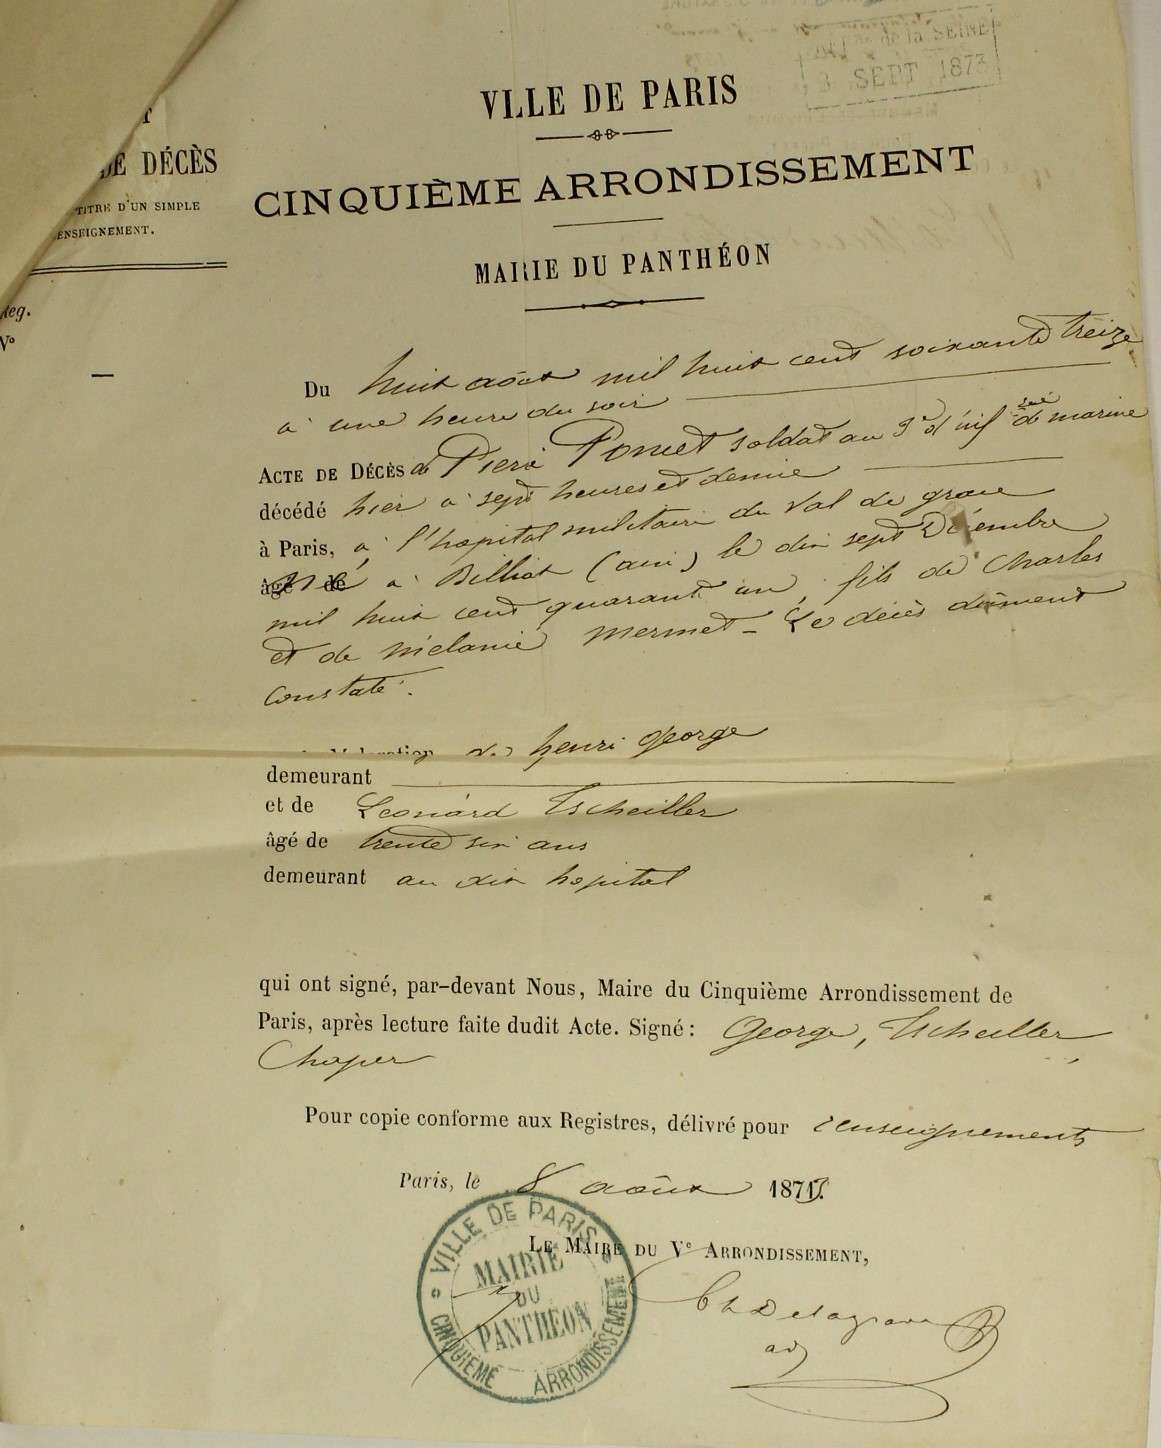 DE DÉCÈS
TITRE D'UN SIMPLE
ENSEIGNEMENT.
Reg.
Vº
de la SEINE
SEPT 1873
VLLE DE PARIS
CINQUIÈME ARRONDISSEMENT
MAIRIE DU PANTHÉON
Du huit août mil huit cent soixante treize
à une heure du soir
ACTE DE DÉCÈS de Pierre Poncet soldat au 3e d'inf de marine
décédé hier à sept heures et demie
à Paris, à l'hopital militaire du Val de grace
âgé de né à Billiat (ain) le dix sept Décembre
mil huit cent quarante un, fils de Charles
et de mélanie mermet - Le décès dûment
constaté.
henri George
demeurant
et de Léonard Tscheiller
âgé de trente six ans
demeurant au dit hopital
qui ont signé, par-devant Nous, Maire du Cinquième Arrondissement de
Paris, après lecture faite dudit Acte. Signé : George, Tscheiller,
Choper
Pour copie conforme aux Registres, délivré pour renseignements
Paris, le 8 août 1873.
LE MAIRE DU Ve ARRONDISSEMENT,
VILLE DE PARIS
MAIRIE
DU
PANTHÉON
CINQUIÈME ARRONDISSEMENT
adj